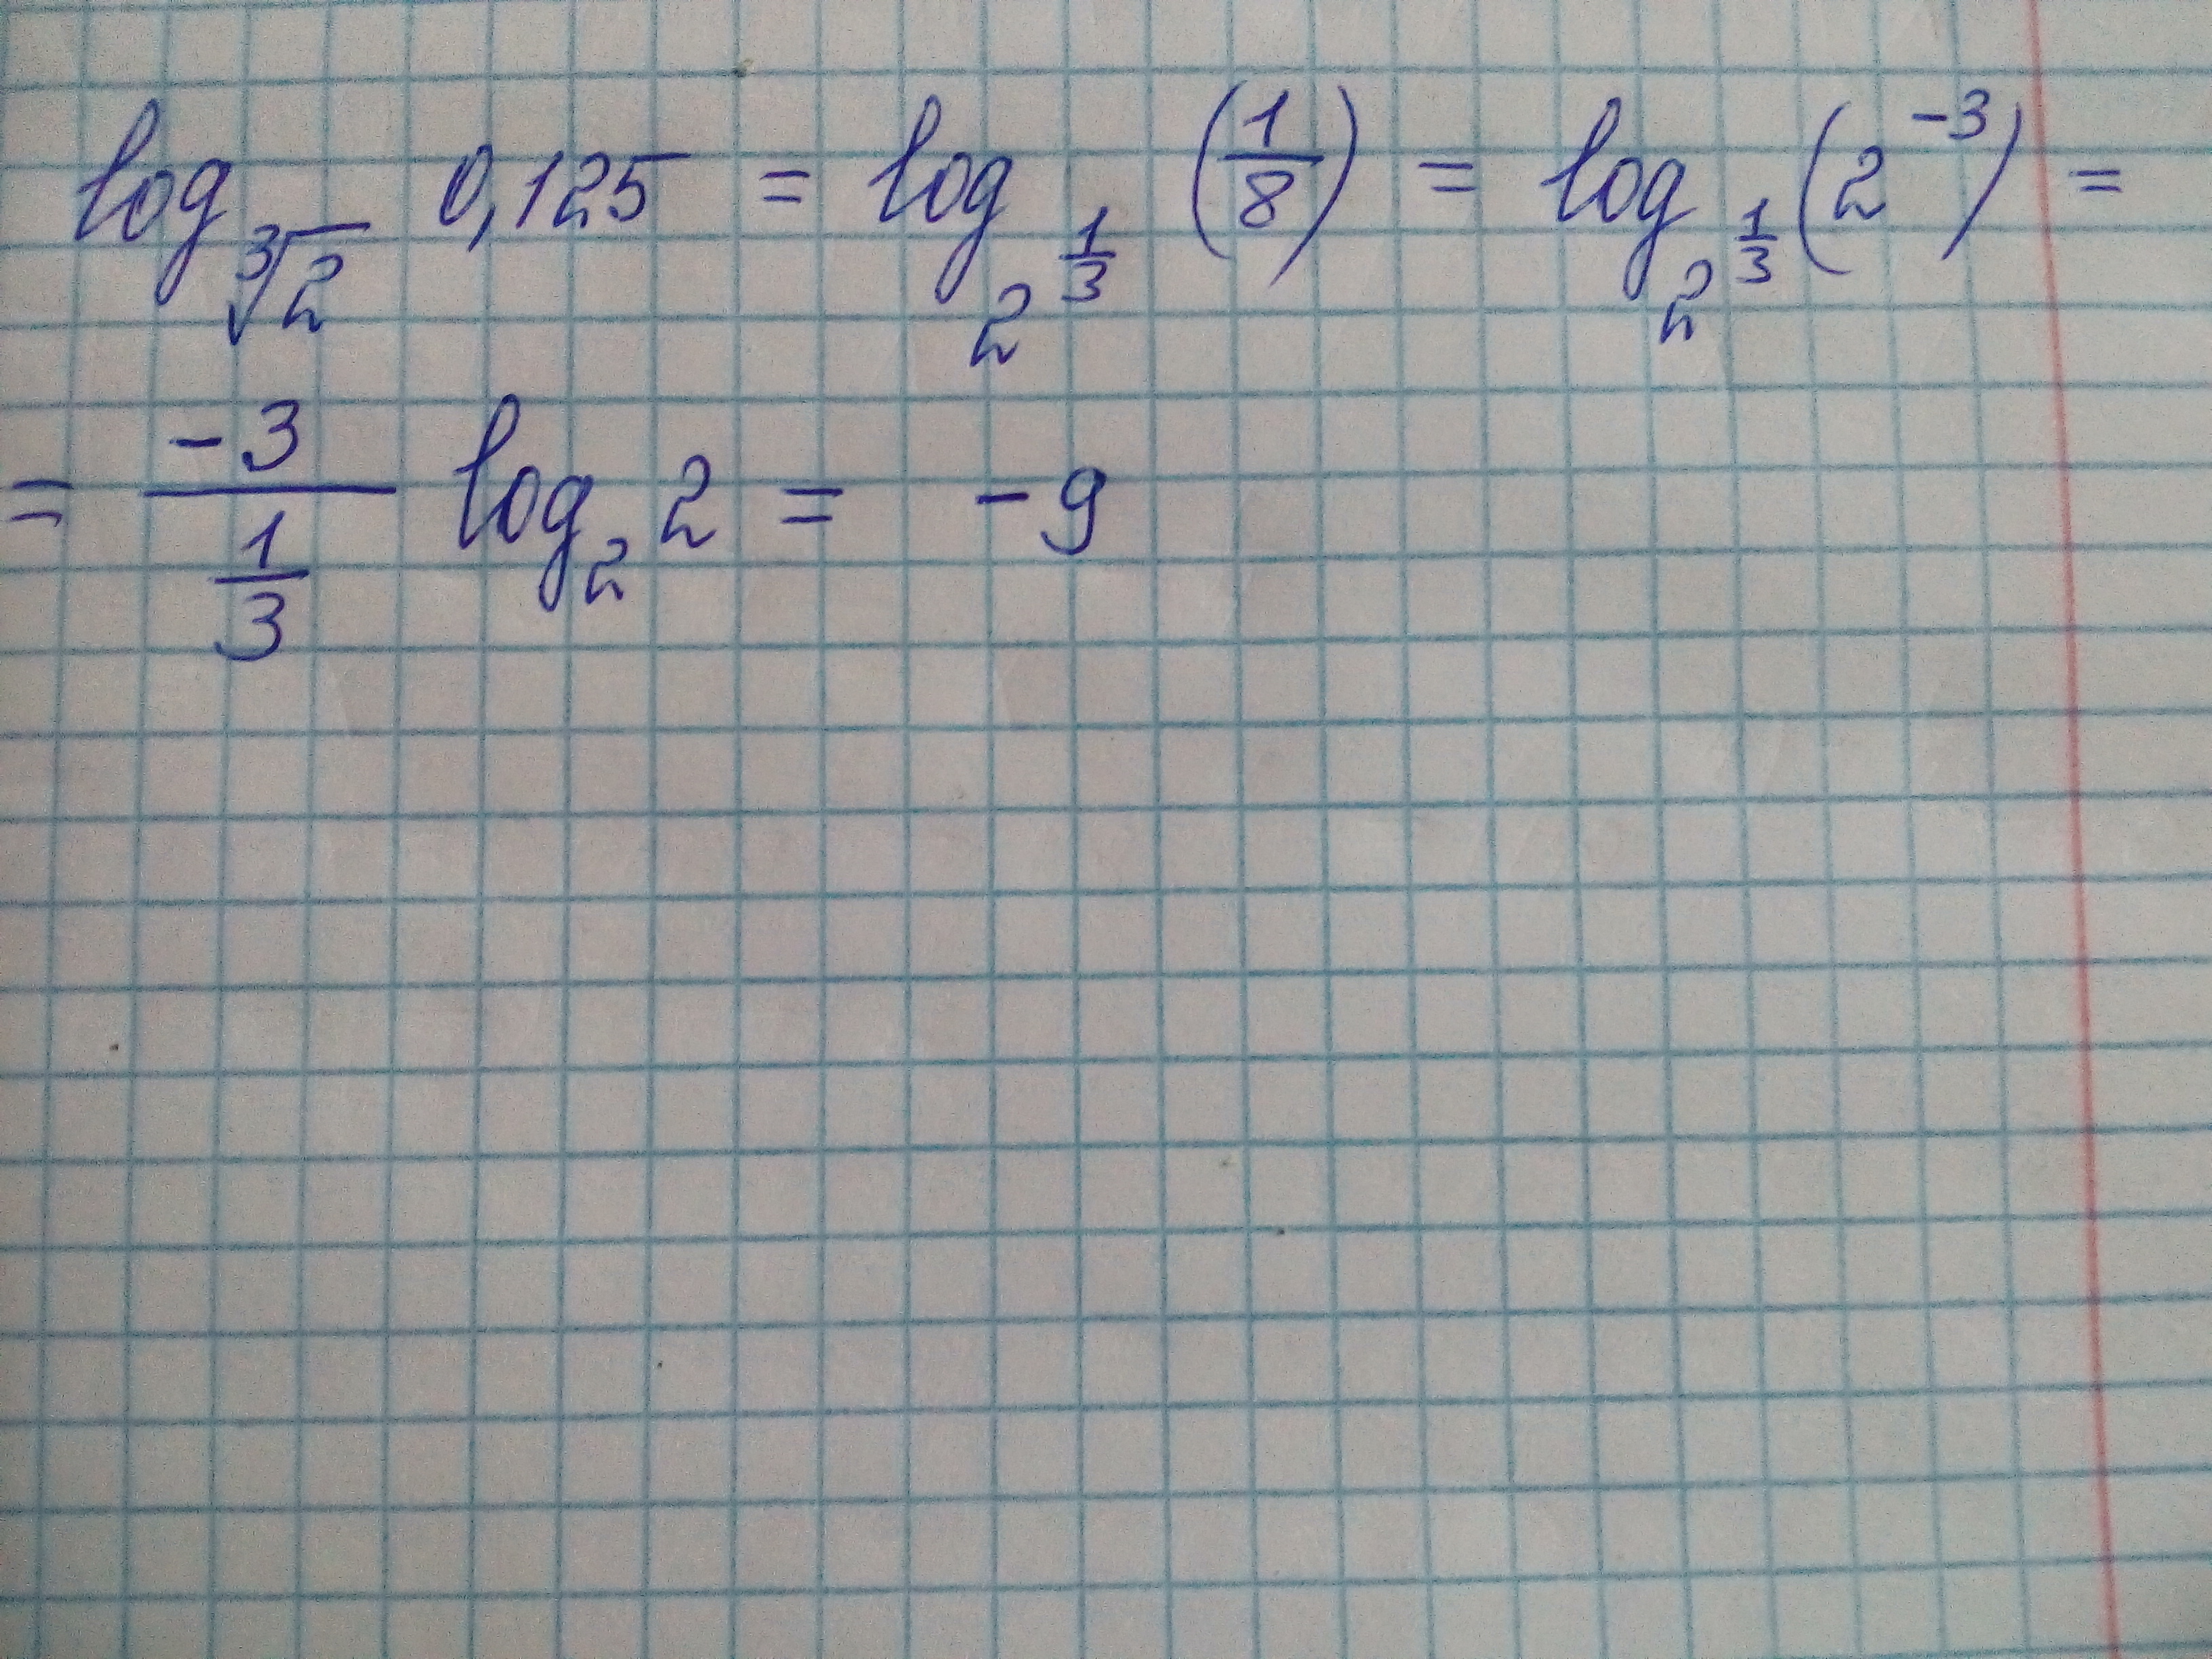 log_{∛2} 0,125 = log_{2^{1/3}} (1/8) = log_{2^{1/3}} (2^{-3}) =
= \frac{-3}{\frac{1}{3}} log_2 2 = -9